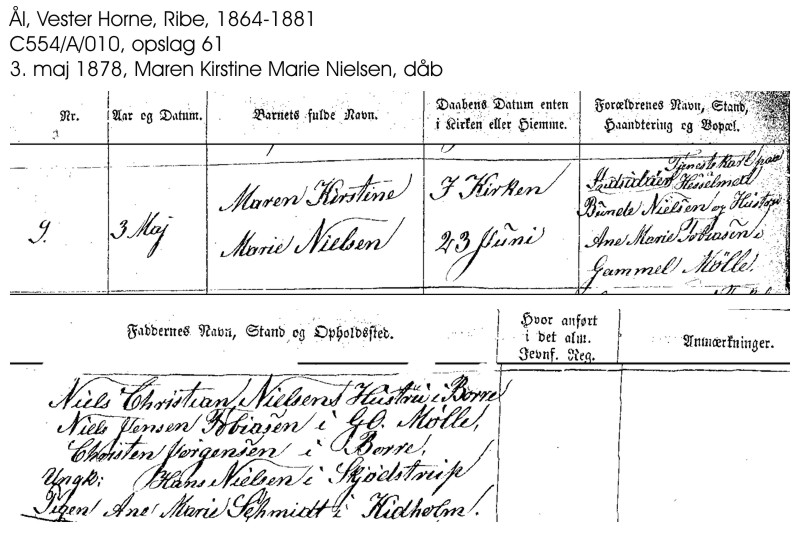 Ål, Vester Horne, Ribe, 1864-1881
C554/A/010, opslag 61
3. maj 1878, Maren Kirstine Marie Nielsen, dåb
Nr. Aar og Datum. Barnets fulde Navn. Daabens Datum enten i Kirken eller Hjemme. Forældrenes Navn, Stand, Haandtering og Bopæl.
9. 3 Maj
Maren Kirstine
Marie Nielsen
I Kirken
23 Juni
Tjenestekarl paa
Hesselmed
Bunde Nielsen og Hustru
Ane Marie Tobiasen i
Gammel Mölle.
Faddernes Navn, Stand og Opholdssted. Hvor anført i det alm. Jevnf. Reg. Anmærkninger.
Niels Christian Nielsens Hustru i Borre
Niels Jensen Tobiasen i Gl. Mölle,
Christen Jørgensen i Borre,
Ungk: Hans Nielsen i Skjödstrup
Pigen Ane Marie Schmidt i Kidholm.